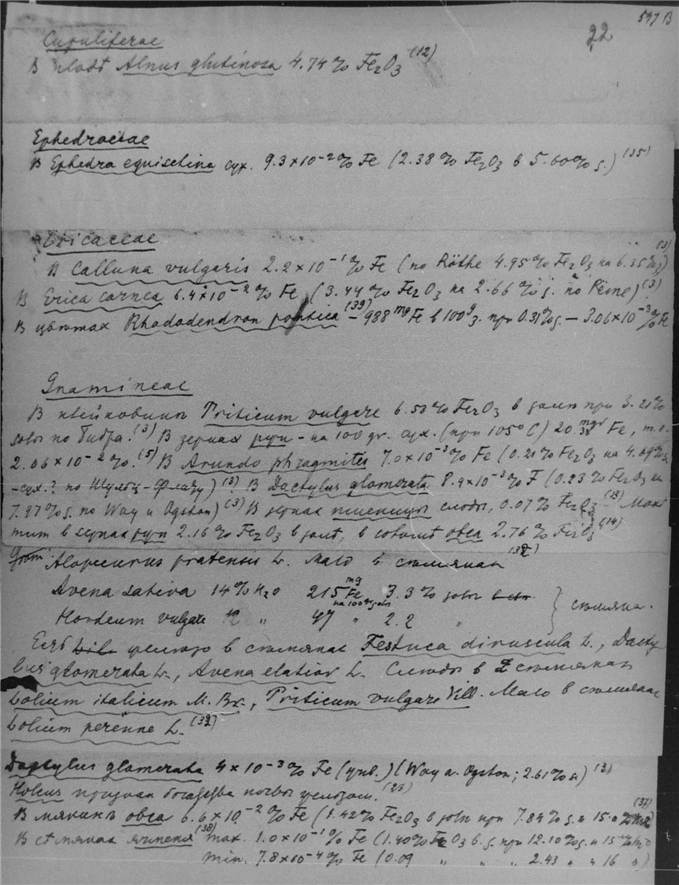 597 В
22
Cupuliferae
В Alnus glutinosa 4.74% Fe₂O₃ (12)
Ephedraceae
В Ephedra equisetina сух. 9.3×10⁻²% Fe (2.38% Fe₂O₃ в 5.60% з.) (35)
Ericaceae
В Calluna vulgaris 2.2×10⁻¹% Fe (по Röthe 4.95% Fe₂O₃ на 6.35% з.) (3)
В Erica carnea 6.4×10⁻²% Fe (3.44% Fe₂O₃ на 2.66% з. по) (3)
В цвѣтах Rhododendron pontica (39) – 988 mg Fe в 100 g з. при 0.31% з. – 3.06×10⁻³% Fe
Gramineae
В клейковинѣ Triticum vulgare 6.50% Fe₂O₃ в золѣ при 3.21%
золы по Бибра. (3) В зернах ржи – на 100 gr. сух. (при 105° С) 20. mgr Fe, т.е.
2.06×10⁻²%. (5) В Arundo phragmites 7.0×10⁻³% Fe (0.21% Fe₂O₃ на 4.69% з.
– сух.? по Шульц-Флету) (3). В Dactylus glomerata 8.9×10⁻³% F (0.23% Fe₂O₃ на
7.97% з. по Way и Ogston) (3) В зернах пшеницы слѣды, 0.07% Fe₂O₃ (13)
мум в зернах ржи 2.16% Fe₂O₃ в золѣ, в соломѣ овса 2.76% Fe₂O₃ (14)
Gram Alopecurus pratensis L. Мало в сѣмянах (32)
Avena sativa 14% H₂O 215 mg Fe 3.3% золы
на 100 gr золы
Hordeum vulgare 12 " 47 " 2.2 " } сѣмяна.
Есть желѣзо в сѣмянах Festuca L., Dacty
lus glomerata L., Avena elatior L. Слѣды в сѣмянах
Lolium italicum M. Br., Triticum vulgare Vill. Мало в сѣмянах
Lolium perenne L. (32)
Dactylus glomerata 4×10⁻³% Fe (Way a. Ogston; 2.61% з) (3)
Holcus признак богатства почвы желѣзом. (26)
В мякинѣ овса 6.6×10⁻²% Fe (1.42% Fe₂O₃ в золѣ при 7.84% з. и 15.0% H₂O) (37)
В сѣмянах ячменя (38) max. 1.0×10⁻¹% Fe (1.40% Fe₂O₃ в з. при 12.10% з. и 15% H₂O
min. 7.8×10⁻⁴% Fe (0.09 " " " 2.43 " " 16 ")